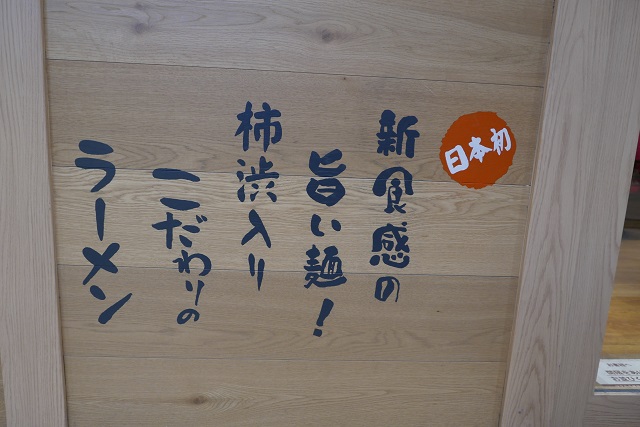 日本初
新食感の
旨い麺！
柿渋入り
こだわりの
ラーメン